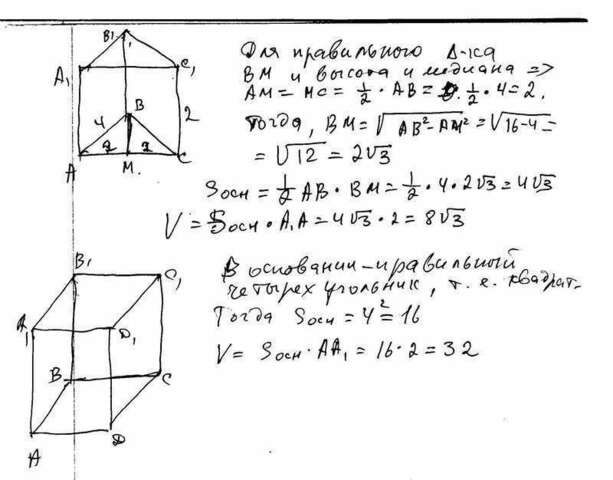 B₁
A₁
C₁
B
4
2
2
2
A
M.
C
Для правильного Δ-ка
BM и высота и медиана ⇒
AM = MC = 1/2 · AB = 1/2 · 4 = 2.
Тогда, BM = √(AB² − AM²) = √(16-4) =
= √12 = 2√3
Sосн = 1/2 AB · BM = 1/2 · 4 · 2√3 = 4√3
V = Sосн · A₁A = 4√3 · 2 = 8√3
B₁
C₁
A₁
D₁
B
C
A
D
В основании – правильный
четырехугольник, т.е. квадрат.
Тогда Sосн = 4² = 16
V = Sосн · AA₁ = 16 · 2 = 32